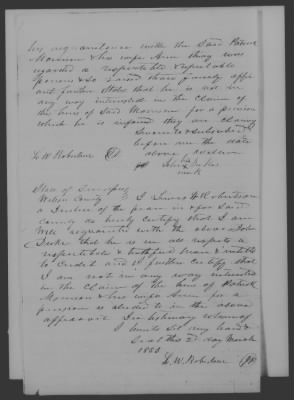 his acquaintance with the said Patrick
Morrison & his wife Ann they was
regarded a respectable & reputable
persons & so raised their family affi
ant further States that he is not in
any way interested in the claim of
the heirs of Said Morrison for a pension
which he is informed they are claiming
Sworn to & subscribed
before me the date
above written
his
John X Duke
mark
State of Tennessee
Wilson County
I Lewis W Robertson
a Justice of the peace in & for Said
County do hereby certify that I am
Well acquainted with the above John
Duke that he is in all respects a
respectable & truthful man & entitled
to credit and I further certify that
I am not in any way interested
in the claim of the heirs of Patrick
Morrison & his wife Ann for a
pension as alluded to in the above
affidavit In testimony whereof
I hereto Set my hand &
Seal this 2d day March
1853